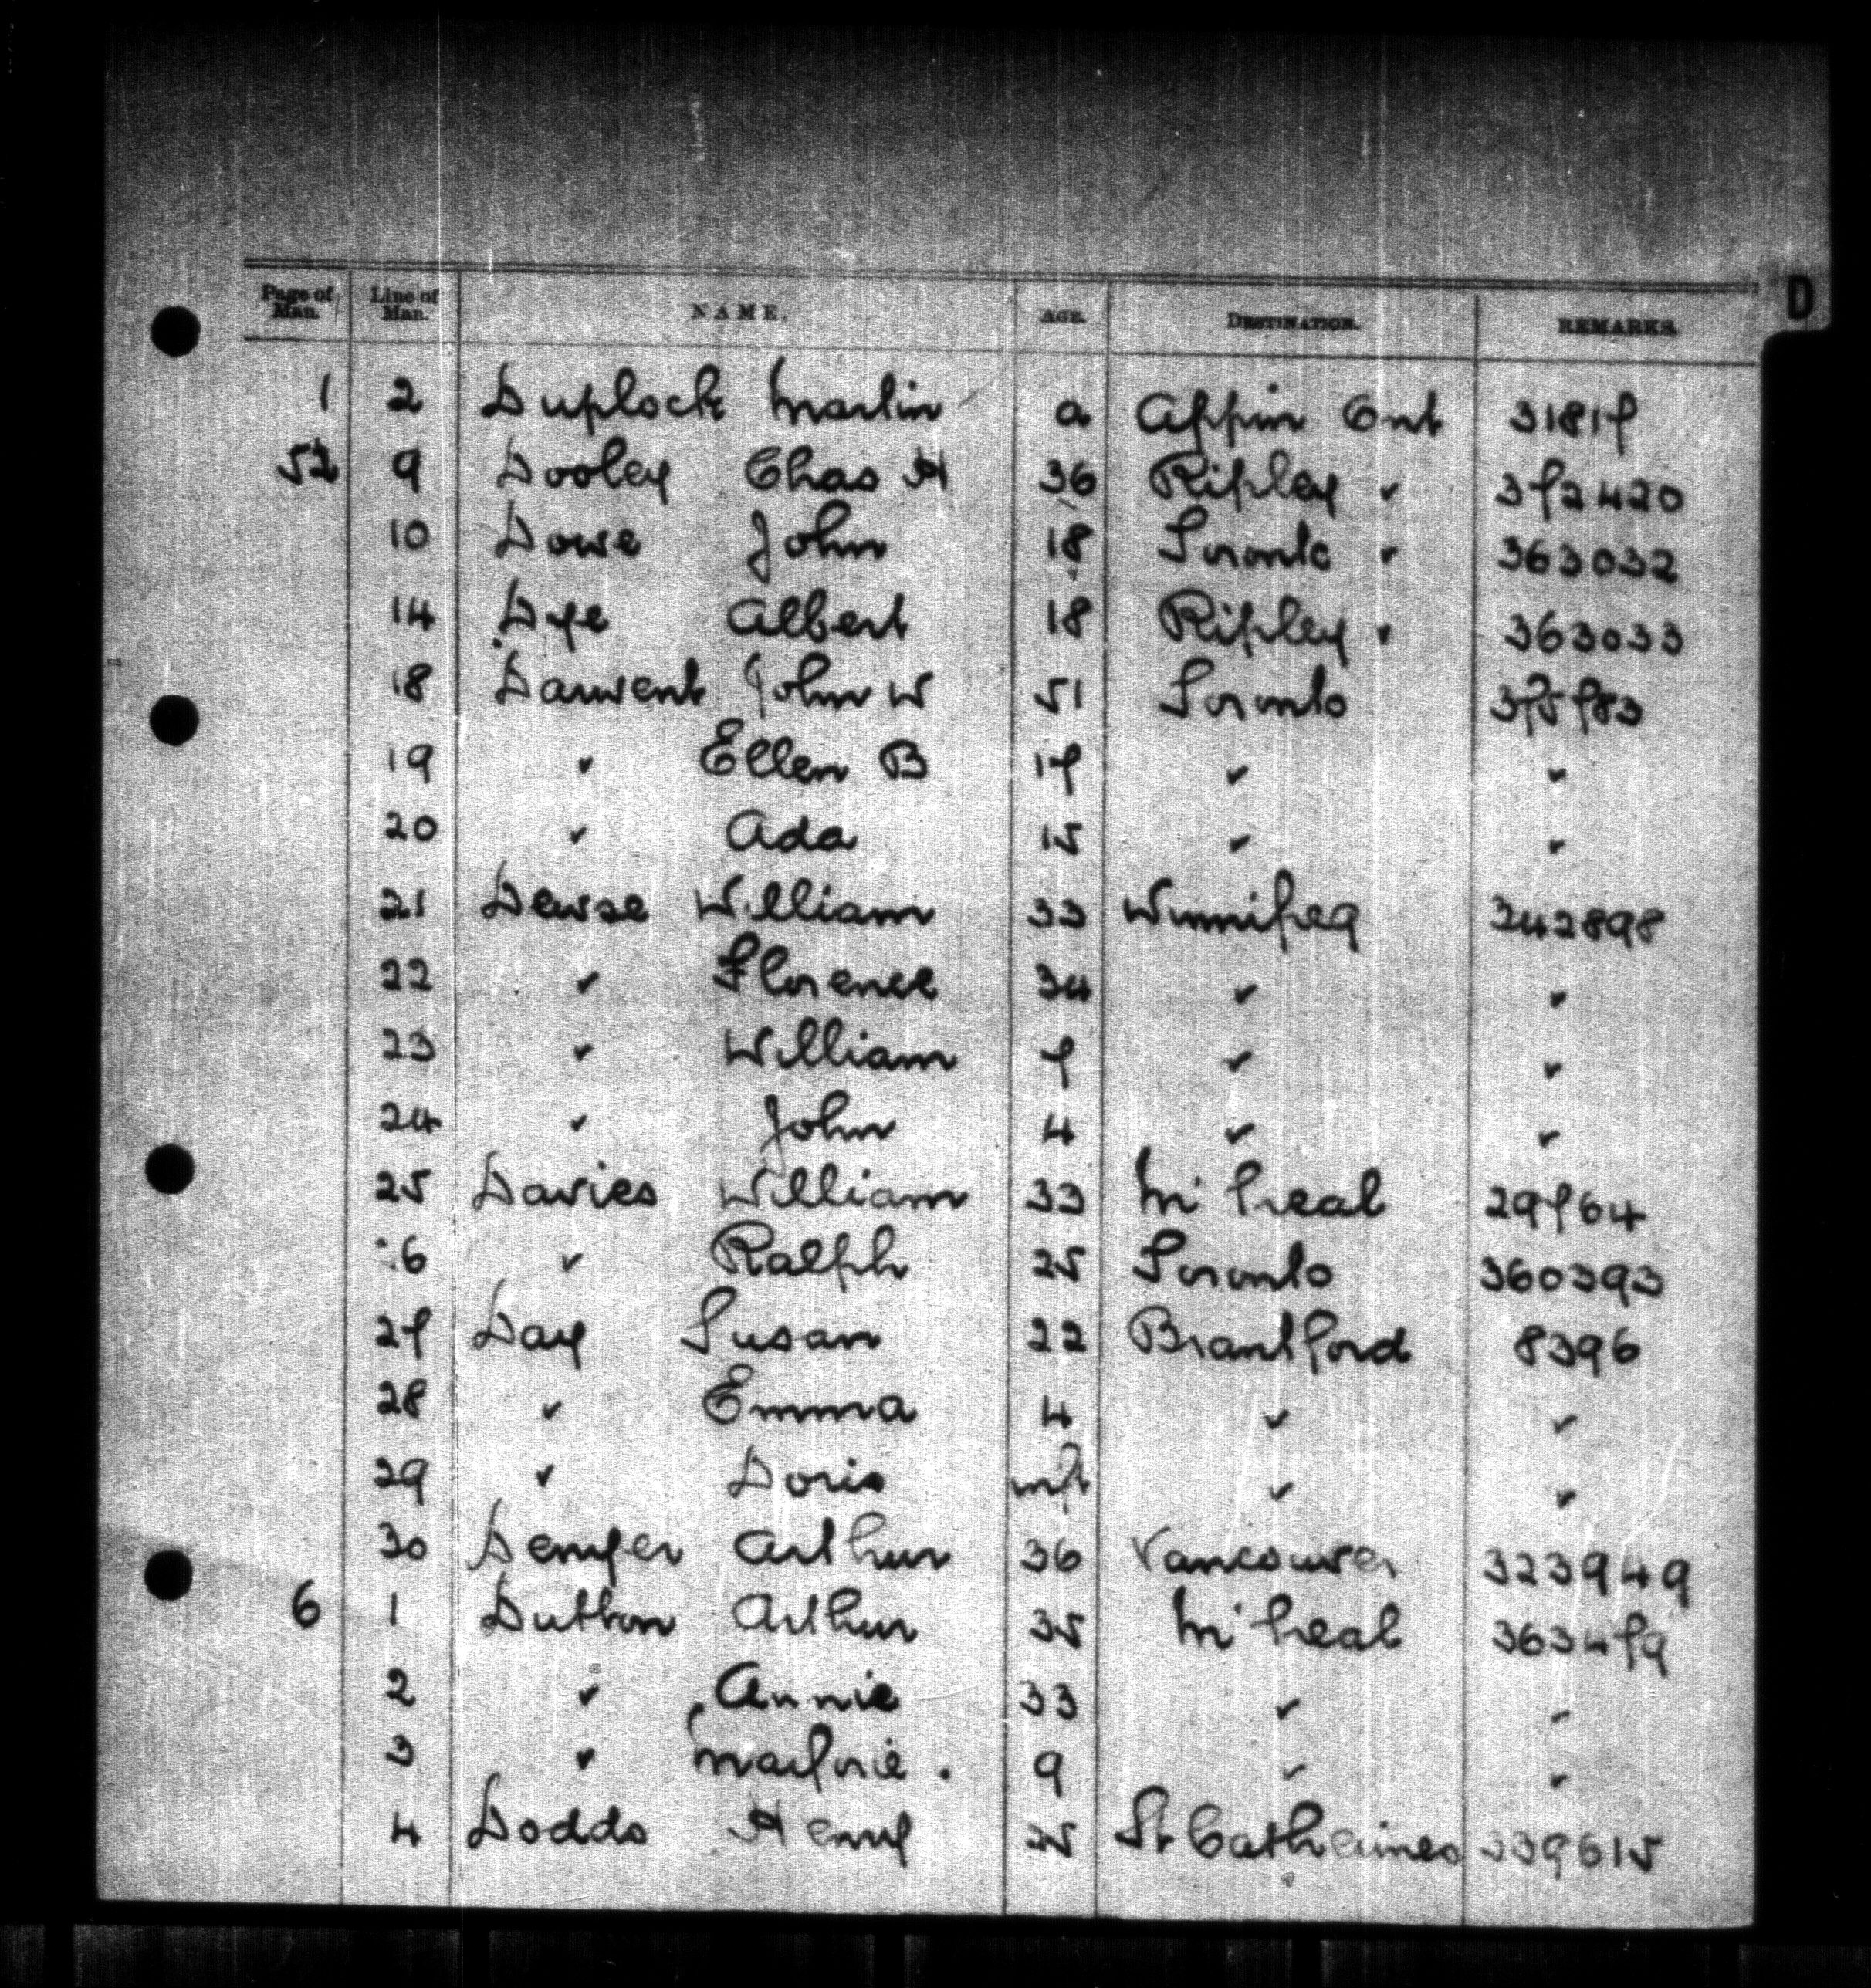 D
Page of Man. Line of Man. NAME. AGE. DESTINATION. REMARKS.
1 2 Duplock Martin a Appin Ont 31817
52 9 Dooley Chas H 36 Ripley " 372420
10 Dowe John 18 Toronto " 363032
14 Dye Albert 18 Ripley " 363033
18 Darwent John W 51 Toronto 375783
19 " Ellen B 17 " "
20 " Ada 15 " "
21 Dewse William 33 Winnipeg 342898
22 " Florence 34 " "
23 " William 7 " "
24 " John 4 " "
25 Davies William 33 M'treal 29764
26 " Ralph 25 Toronto 360393
27 Day Susan 22 Brantford 8396
28 " Emma 4 " "
29 " Doris inft " "
30 Arthur 36 Vancouver 323949
6 1 Dutton Arthur 35 M'treal 363479
2 " Annie 33 " "
3 " Marjorie . 9 " "
4 Dodds Henry 25 St Catharines 339615